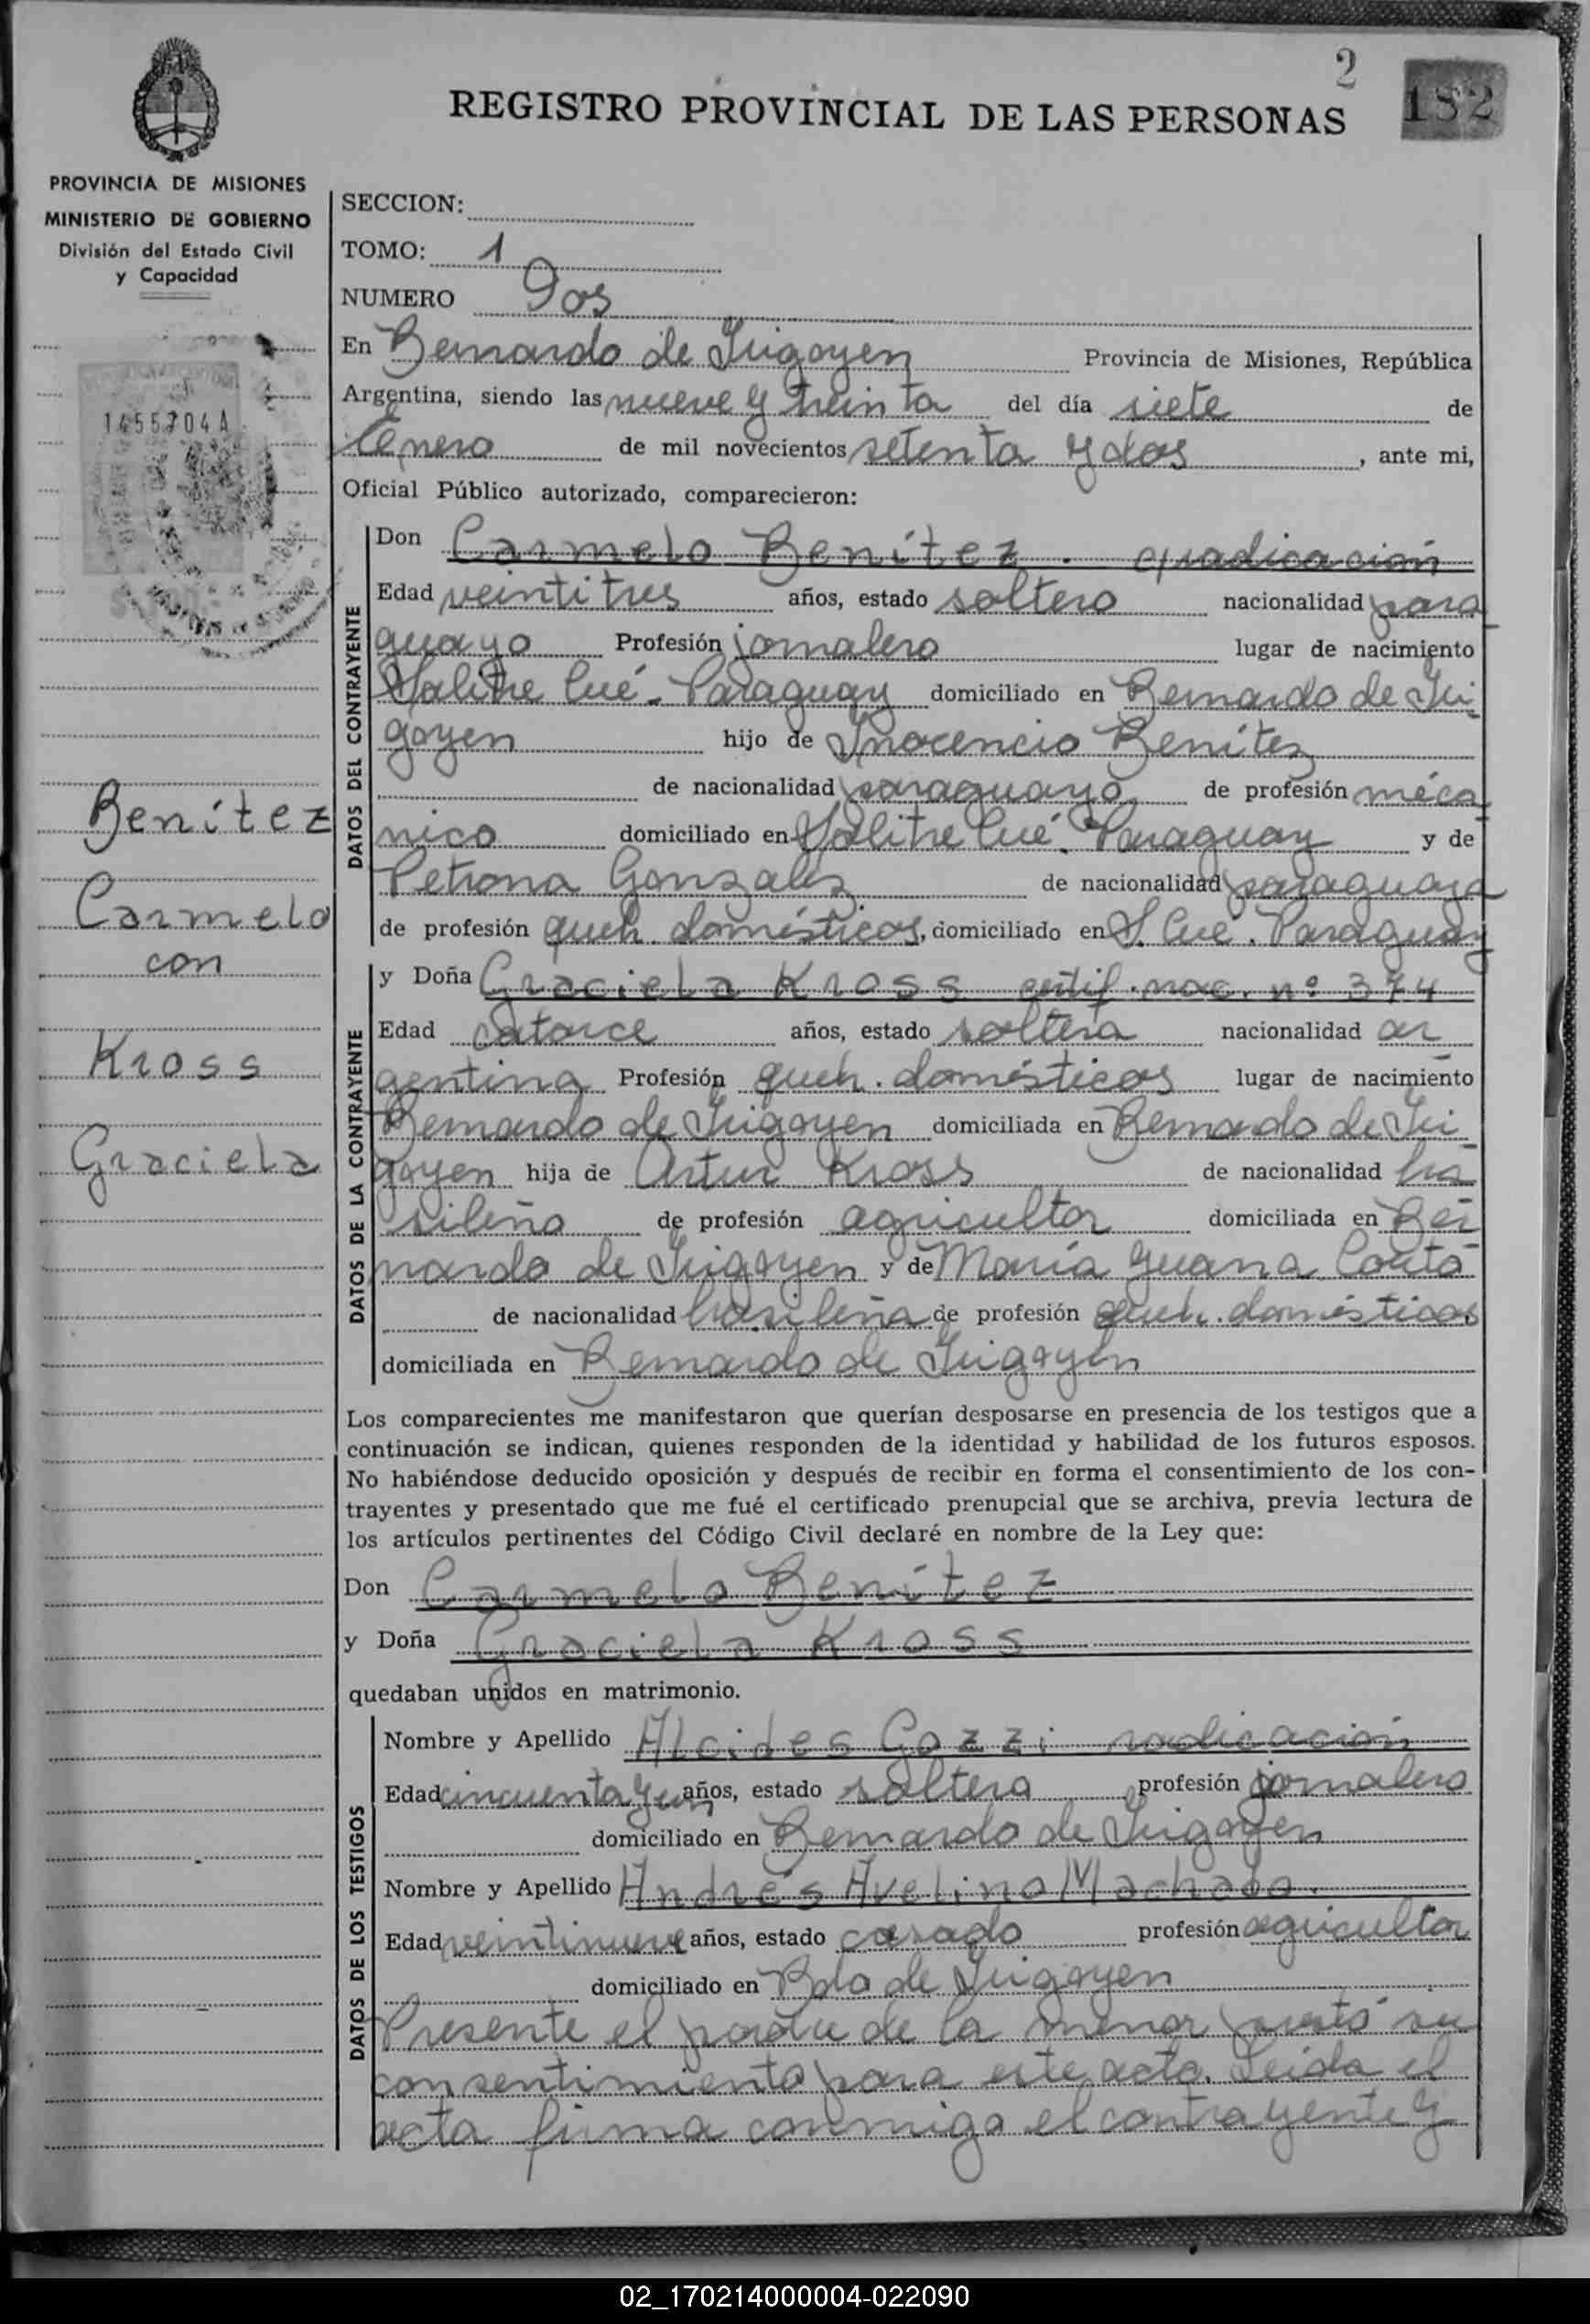 2
182
REGISTRO PROVINCIAL DE LAS PERSONAS
PROVINCIA DE MISIONES
MINISTERIO DE GOBIERNO
División del Estado Civil
y Capacidad
1455704 A
Benítez
Carmelo
con
Kross
Graciela
SECCION:
TOMO: 1
NUMERO Dos
En Bernardo de Irigoyen Provincia de Misiones, República
Argentina, siendo las nueve y treinta del día siete de
Enero de mil novecientos setenta y dos, ante mi,
Oficial Público autorizado, comparecieron:
DATOS DEL CONTRAYENTE
Don Carmelo Benítez. radicación
Edad veintitres años, estado soltero nacionalidad para
guayo Profesión jornalero lugar de nacimiento
Salitre Cué - Paraguay domiciliado en Bernardo de Iri
goyen hijo de Inocencio Benítez
de nacionalidad paraguayo de profesión méca
nico domiciliado en Salitre Cué. Paraguay y de
Petrona Gonzalez de nacionalidad paraguaya
de profesión queh. domésticos, domiciliado en S. Cué. Paraguay
DATOS DE LA CONTRAYENTE
y Doña Graciela Kross certif. nac. nº 374
Edad catorce años, estado soltera nacionalidad ar
gentina Profesión queh. domésticos lugar de nacimiento
Bernardo de Irigoyen domiciliada en Bernardo de Iri
goyen hija de Artur Kross de nacionalidad bra
sileña de profesión agricultor domiciliada en Ber
nardo de Irigoyen y de María Juana Couto
de nacionalidad brasileña de profesión queh. domésticos
domiciliada en Bernardo de Irigoyen
Los comparecientes me manifestaron que querían desposarse en presencia de los testigos que a
continuación se indican, quienes responden de la identidad y habilidad de los futuros esposos.
No habiéndose deducido oposición y después de recibir en forma el consentimiento de los con-
trayentes y presentado que me fué el certificado prenupcial que se archiva, previa lectura de
los artículos pertinentes del Código Civil declaré en nombre de la Ley que:
Don Carmelo Benítez
y Doña Graciela Kross
quedaban unidos en matrimonio.
DATOS DE LOS TESTIGOS
Nombre y Apellido Alcides Gozzi radicación
Edad cincuenta y un años, estado soltero profesión jornalero
domiciliado en Bernardo de Irigoyen
Nombre y Apellido Andrés Avelino Machado.
Edad veintinueve años, estado casado profesión agricultor
domiciliado en Bdo de Irigoyen
Presente el padre de la menor presta su
consentimiento para este acto. Leida el
acta firma conmigo el contrayente y
02_170214000004-022090